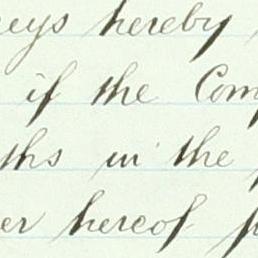 neys hereby
if the Com
ths in the
er hereof